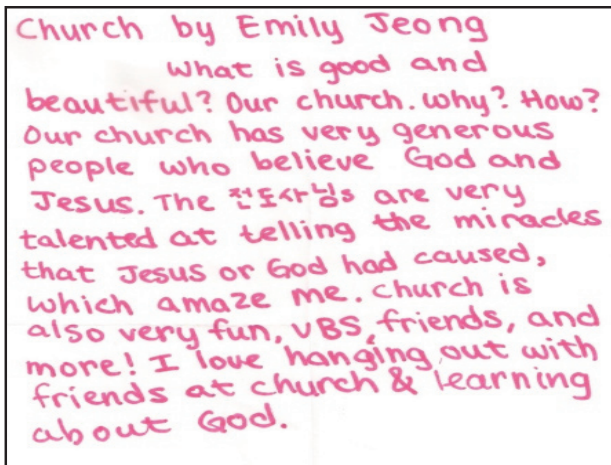 Church by Emily Jeong
What is good and
beautiful? Our church. Why? How?
Our church has very generous
people who believe God and
Jesus. The 전도사님s are very
talented at telling the miracles
that Jesus or God had caused,
which amaze me. Church is
also very fun, VBS, friends, and
more! I love hanging out with
friends at church & learning
about God.